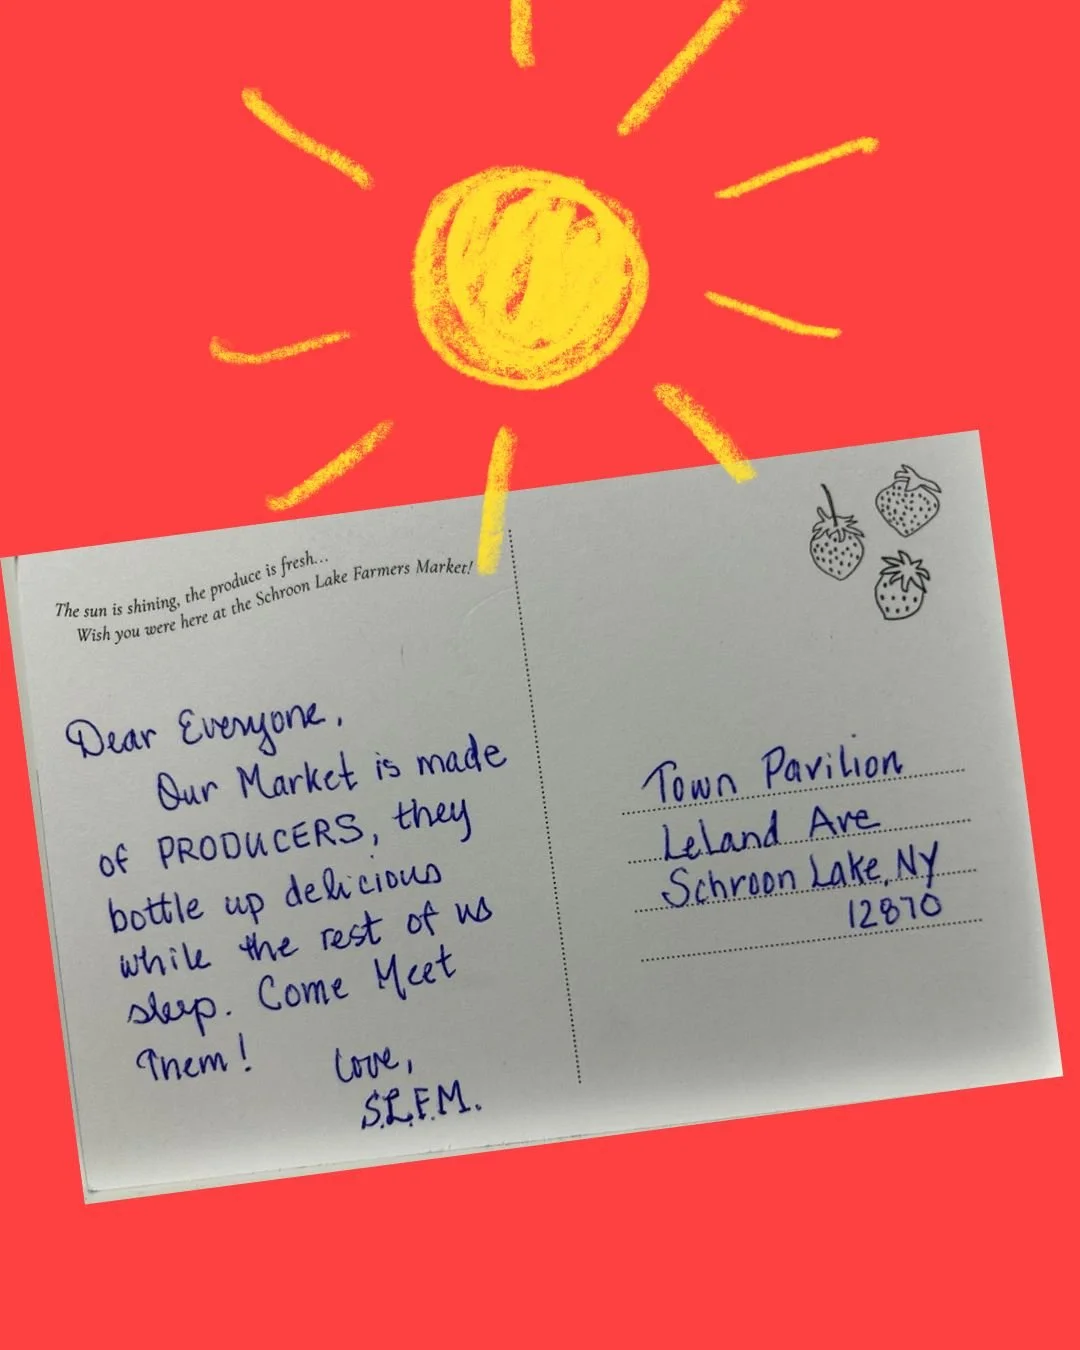 The sun is shining, the produce is fresh...
Wish you were here at the Schroon Lake Farmers Market!
Dear Everyone,
Our Market is made
of PRODUCERS, they
bottle up delicious
while the rest of us
sleep. Come Meet
Them!
Love,
S.L.F.M.
Town Pavilion
Leland Ave
Schroon Lake, NY
12870